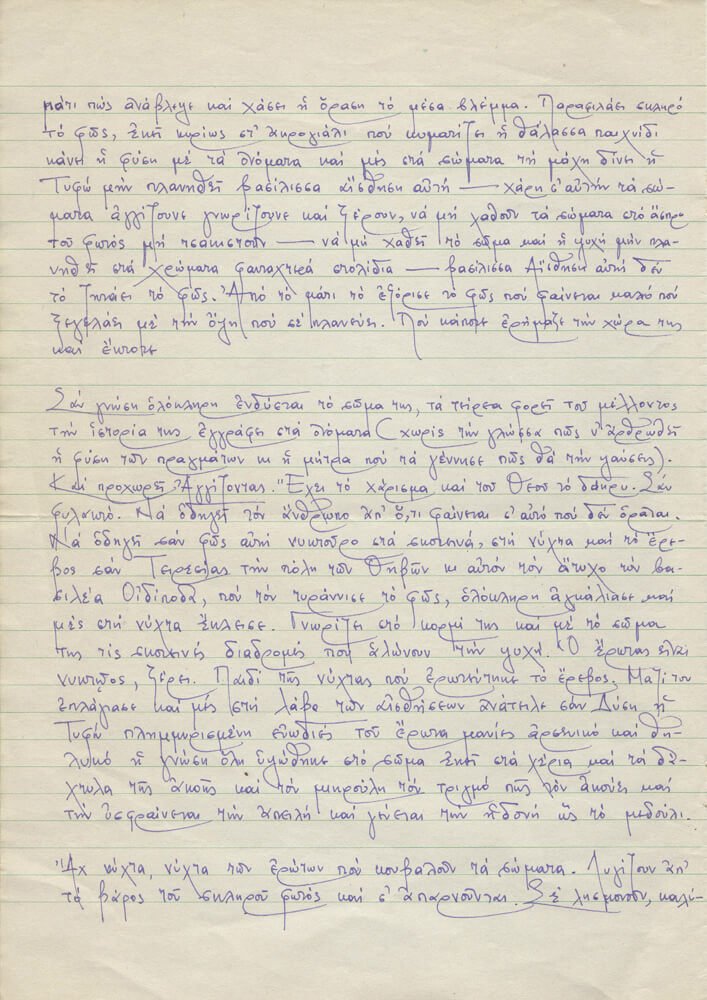 μάτι πώς ἀνάβλεψε καί χάσει ἡ ὅραση τό μέσα βλέμμα. Παραφιλάει σκληρό
τό φῶς, ἐκεῖ κυρίως στ' ἀκρογιάλι πού κυματίζει ἡ θάλασσα παιχνίδι
κάνει ἡ φύση μέ τά ὀνόματα καί μές στά σώματα τή μάχη δίνει ἡ
Τυφώ μήν πλανηθεῖ βασίλισσα αἴσθηση αὐτή — χάρη σ' αὐτήν τά σώ-
ματα ἀγγίζουνε γνωρίζουνε καί ξέρουν, νά μή χαθοῦν τά σώματα στό ἄσπρο
τοῦ φωτός μή τσακιστοῦν — νά μή χαθεῖ τό σῶμα καί ἡ ψυχή μήν πλα-
νηθεῖ στά χρώματα φανταχτερά στολίδια — βασίλισσα Αἴσθηση αὐτή δέν
τό ζητάει τό φῶς. Ἀπό τό μάτι τό ἐξόρισε τό φῶς πού φαίνεται καλό πού
ξεγελάει μέ τήν ὄψη πού σέ πλανεύει. Πού κάποτε ἐρήμαξε τήν χώρα της
καί ἔκτοτε
Σάν γνώση ὁλόκληρη ἐνδύεται τό σῶμα της, τά τείρεα φορεῖ τοῦ μέλλοντος
τήν ἱστορία της ἐγγράφει στά ὀνόματα (χωρίς τήν γλώσσα πῶς ν' ἀρθρωθεῖ
ἡ φύση τῶν πραγμάτων κι ἡ μήτρα πού τά γέννησε πῶς θά τήν γαύσεις).
Καί προχωρεῖ. Ἀγγίζοντας. Ἔχει τό χάρισμα καί τοῦ Θεοῦ τό δάκρυ. Σάν
φυλακτό. Νά ὁδηγεῖ τόν ἄνθρωπο ἀπ' ὅ,τι φαίνεται σ' αὐτό πού δέν ὁρᾶται.
Νά ὁδηγεῖ σάν φῶς αὐτή νυκτοῦρο στά σκοτεινά, στή νύχτα καί τό ἔρε-
βος σάν Τειρεσίας τήν πόλη τῶν Θηβῶν κι αὐτόν τόν ἄτυχο τόν βα-
σιλέα Οἰδίποδα, πού τόν τυράννισε τό φῶς, ὁλόκληρη ἀγκάλιασε καί
μές στή νύχτα ἔκλεισε. Γνωρίζει στό κορμί της καί μέ τό σῶμα
της τίς σκοτεινές διαδρομές πού ἁλώνουν τήν ψυχή. Ὁ ἔρωτας εἶναι
νυκτῶος, ξέρει. Παιδί τῆς νύχτας πού ἐρωτεύτηκε τό ἔρεβος. Μαζί του
ἐπλάγιασε καί μές στή λάβα τῶν αἰσθήσεων ἀνάτειλε σάν Δύση ἡ
Τυφώ πλημμυρισμένη εὐωδιές τοῦ ἔρωτα μανίες ἀρσενικό καί θη-
λυκό ἡ γνώση ὅλη ὑψώθηκε στό σῶμα ἐκεῖ στά χέρια καί τά δά-
χτυλα τῆς ἀκοῆς καί τόν μικρούλη τόν τριγμό πῶς τόν ἀκούει καί
τήν ὀσφραίνεται τήν ἀπειλή καί γεύεται τήν ἡδονή ὥς τό μεδούλι.
Ἄχ νύχτα, νύχτα τῶν ἐρώτων πού κουβαλοῦν τά σώματα. Λυγίζουν ἀπ'
τό βάρος τοῦ σκληροῦ φωτός καί σ' ἀπαρνοῦνται. Σέ λησμονοῦν, καλύ-